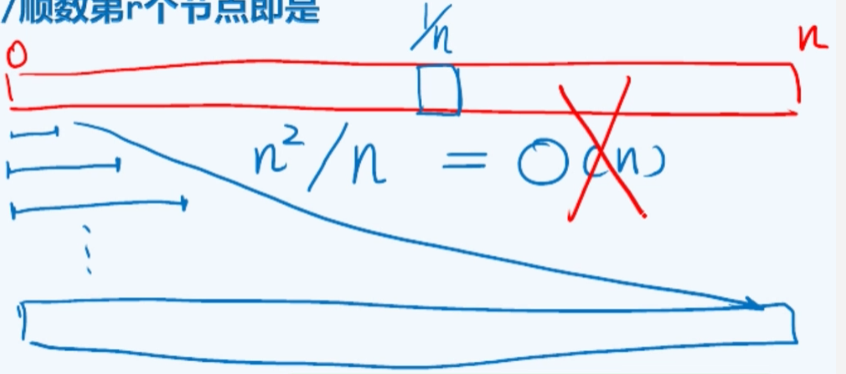 /顺数第r个节点即是
1/n
0 n
n²/n = O(n)